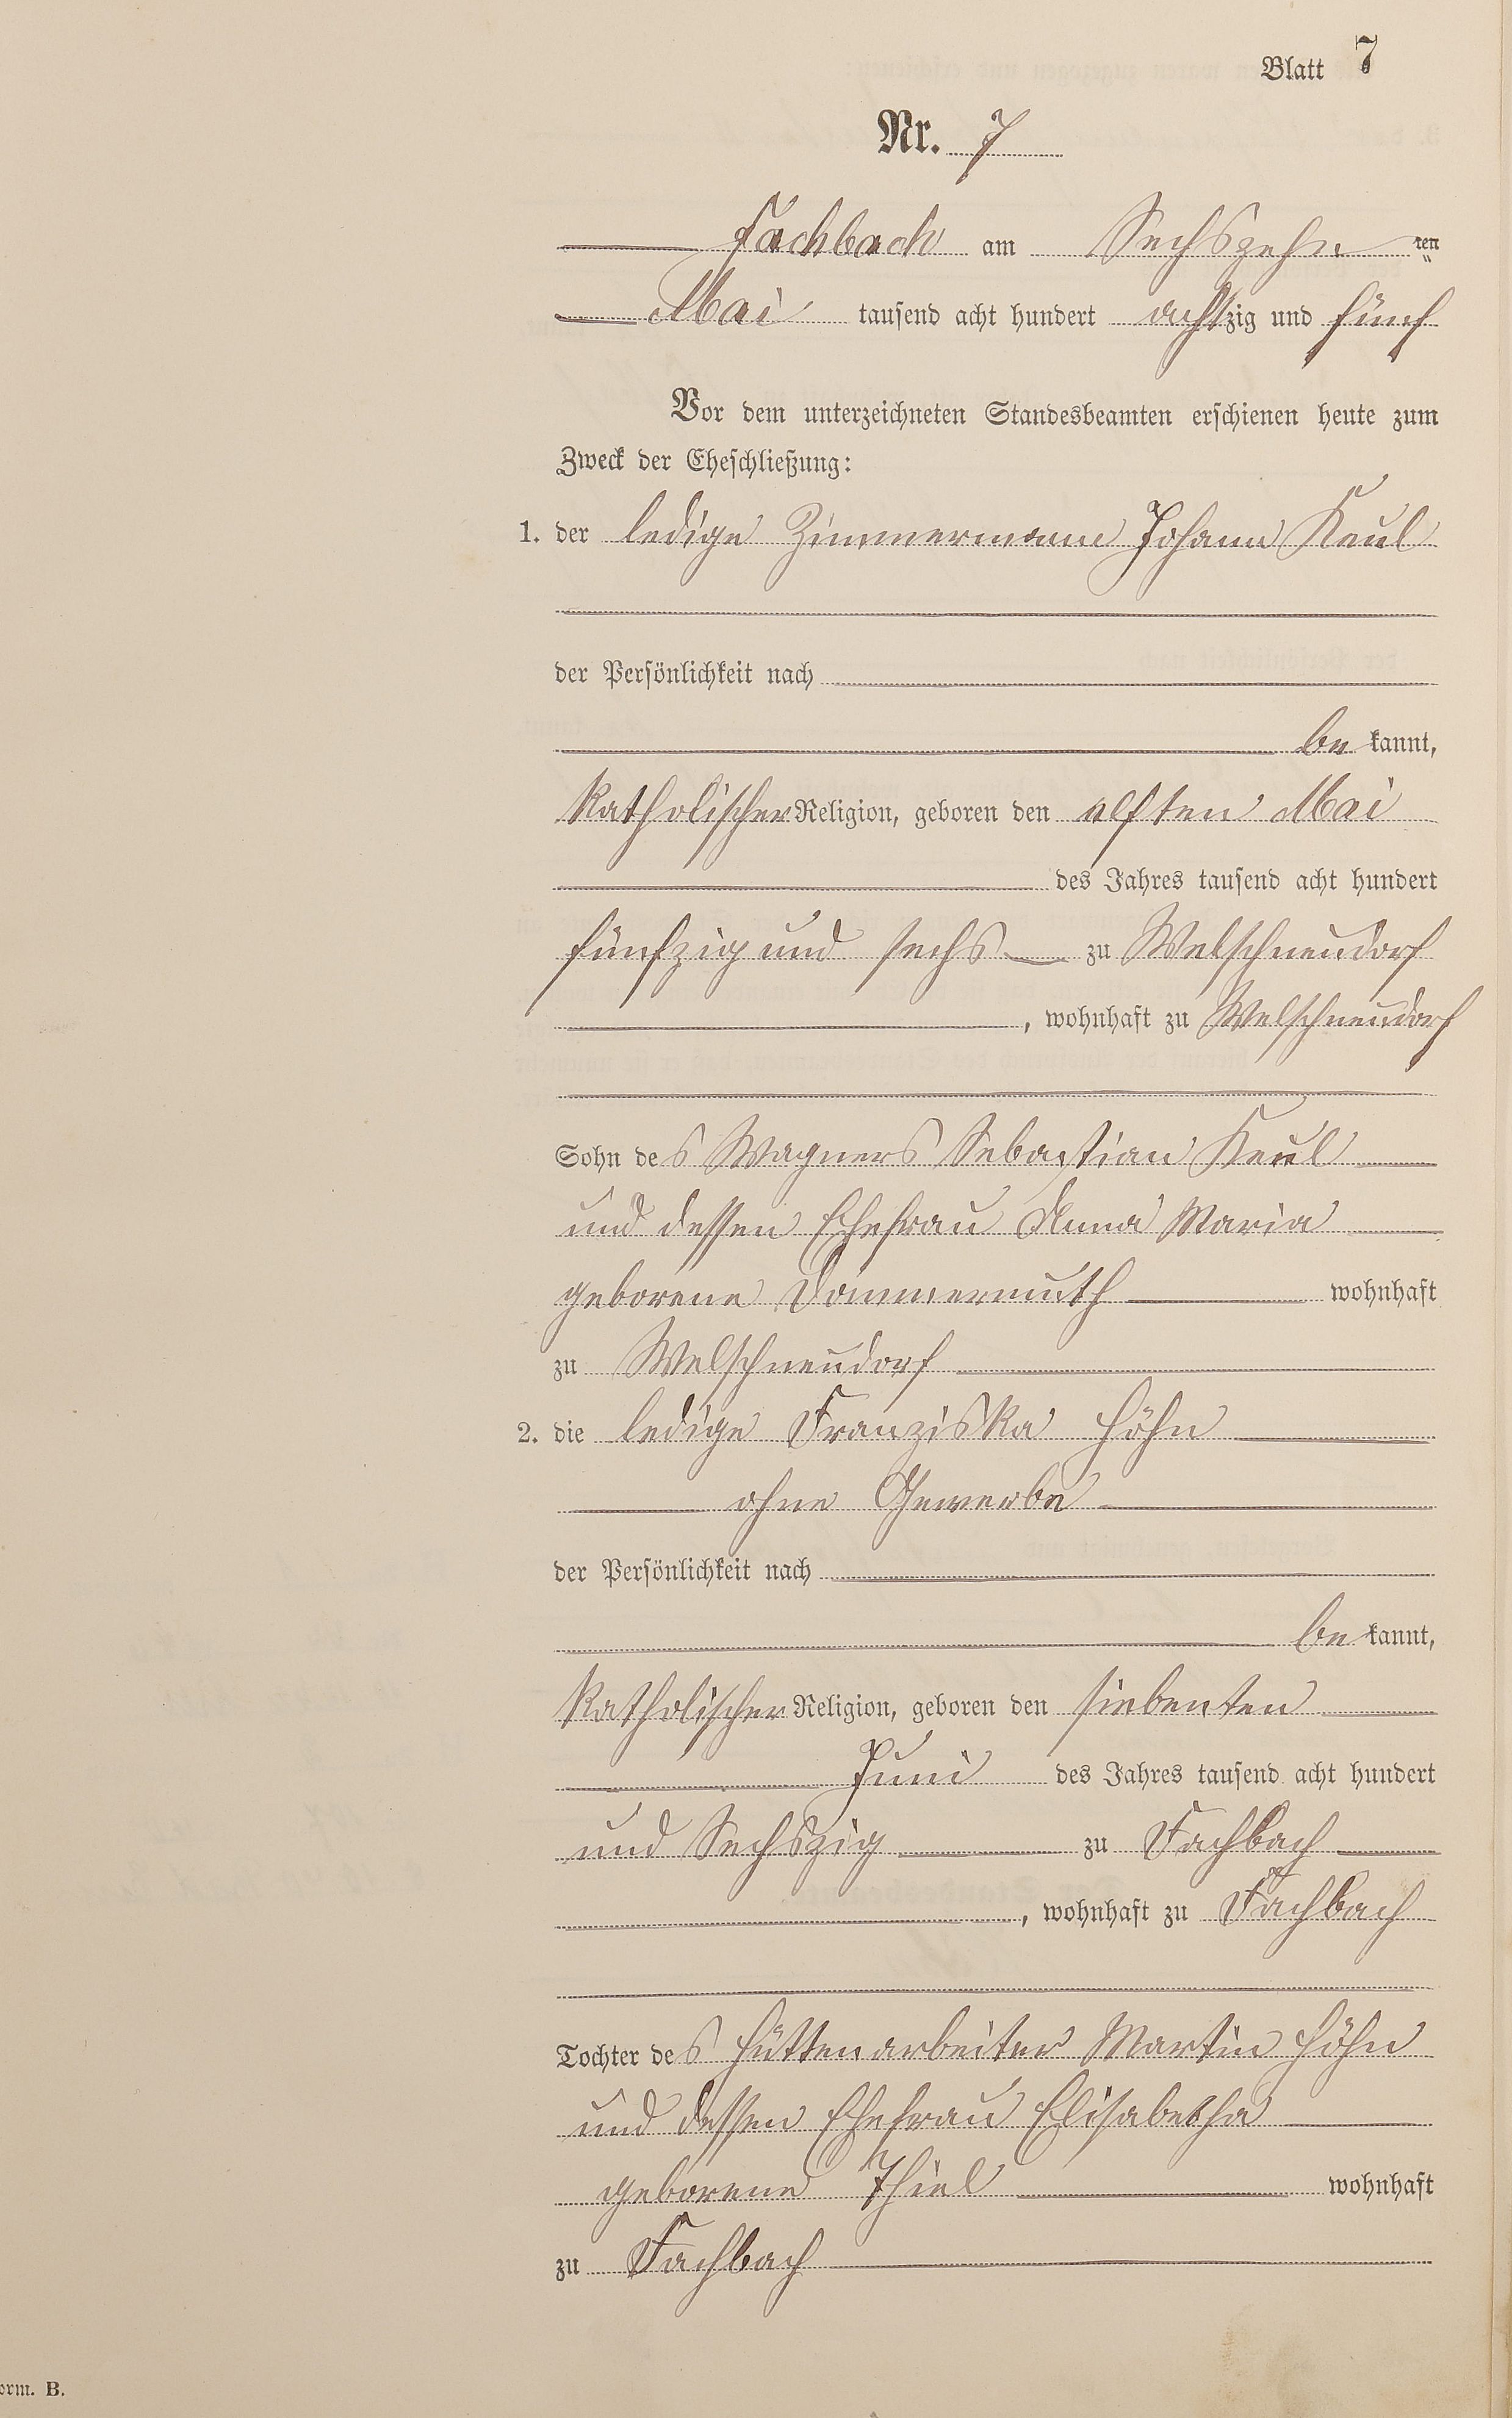 Blatt 7
Nr. 7
Fachbach am Sechszehnten
Mai tausend acht hundert achtzig und fünf
Vor dem unterzeichneten Standesbeamten erschienen heute zum
Zweck der Eheschließung:
1. der ledige Zimmermann Johann Keul
der Persönlichkeit nach
be kannt,
katholischer Religion, geboren den elften Mai
des Jahres tausend acht hundert
fünfzig und sechs zu Welschneudorf
, wohnhaft zu Welschneudorf
Sohn des Wagners Sebastian Keul
und dessen Ehefrau Anna Maria
geborene Dommermuth wohnhaft
zu Welschneudorf
2. die ledige Franziska Höhn
ohne Gewerbe
der Persönlichkeit nach
be kannt,
katholischer Religion, geboren den siebenten
Juni des Jahres tausend acht hundert
und Sechszig zu Fachbach
, wohnhaft zu Fachbach
Tochter des Hüttenarbeiter Martin Höhn
und dessen Ehefrau Elisabetha
geborene Thiel wohnhaft
zu Fachbach
orm. B.